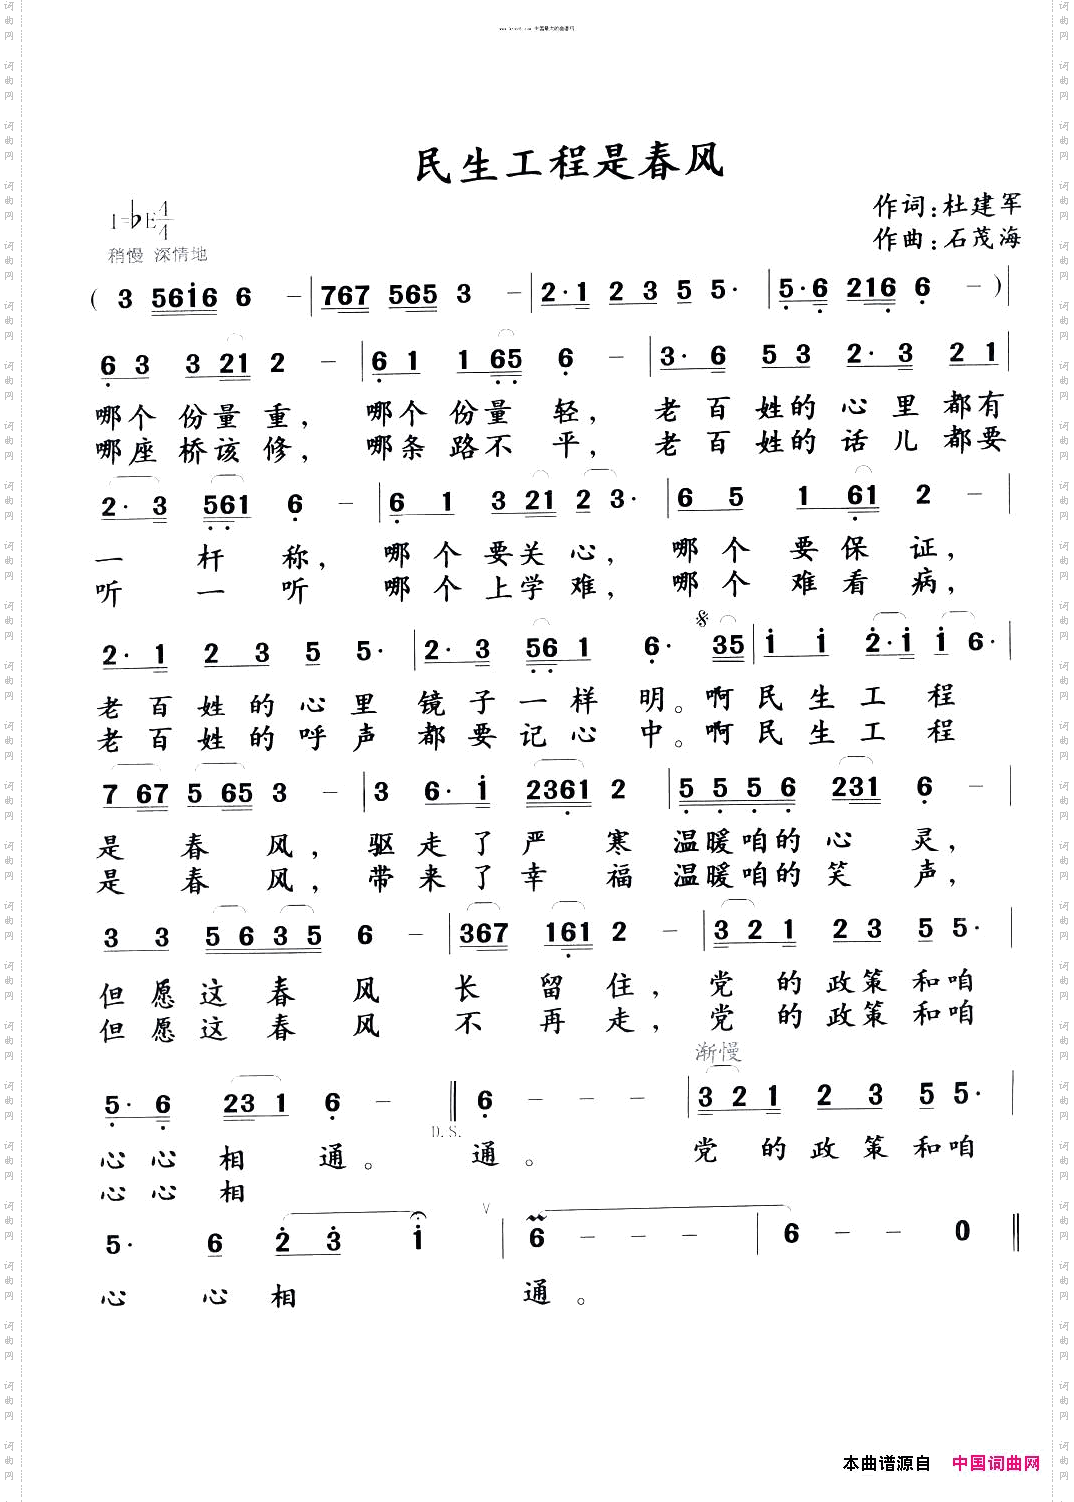 民生工程是春风
作词：杜建军
1=♭E 4/4
作曲：石茂海
稍慢 深情地
( 3 5616 6 － | 767 565 3 － | 2· 1 2 3 5 5· | 5· 6 216 6 － ) |
6 3 3 21 2 － | 6 1 1 65 6 － | 3· 6 5 3 2· 3 2 1 |
哪个 份量 重， 哪个 份量 轻， 老百姓的心里都有
哪座 桥该 修， 哪条 路不 平， 老百姓的话儿都要
2· 3 561 6 － | 6 1 3 21 2 3· | 6 5 1 61 2 － |
一 杆 称， 哪个要关心， 哪个要保证，
听 一 听 哪个上学难， 哪个难看病，
2· 1 2 3 5 5· | 2· 3 56 1 6· 35 | 1 1 2· 1 1 6· |
老百姓的心里 镜子一样明。啊民生工程
老百姓的呼声 都要记心中。啊民生工程
7 67 5 65 3 － | 3 6· 1 2361 2 | 5 5 5 6 231 6 － |
是 春 风， 驱走了严寒 温暖咱的心灵，
是 春 风， 带来了幸福 温暖咱的笑声，
3 3 5 6 3 5 6 － | 367 161 2 － | 3 2 1 2 3 5 5· |
但愿这春风 长留住， 党的政策和咱
但愿这春风 不再走， 党的政策和咱
渐慢
5· 6 23 1 6 － ‖ 6 － － － | 3 2 1 2 3 5 5· |
D.S.
心心相通。 通。 党的政策和咱
心心相
5· 6 2 3 1 | 6 － － － | 6 － － 0 ‖
心 心相 通。
本曲谱源自 中国词曲网